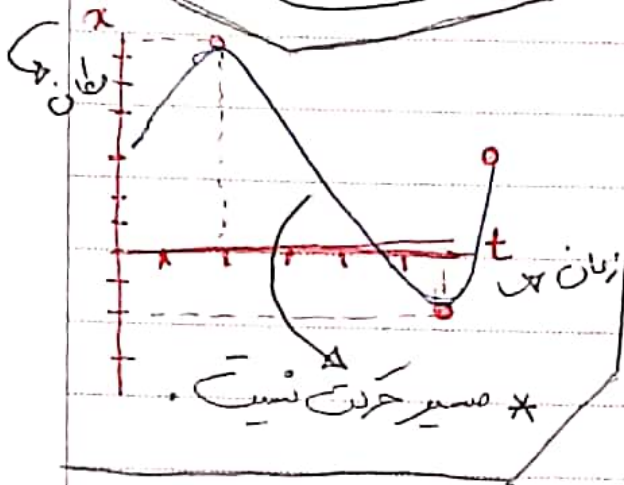 x
مکان
t
زمان
* مسیر حرکت نیست.